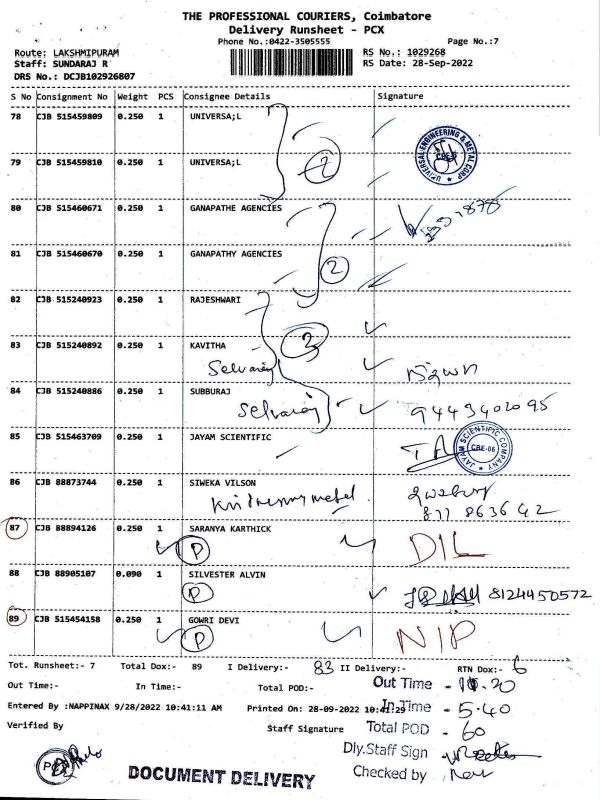 THE PROFESSIONAL COURIERS, Coimbatore
Delivery Runsheet - PCX
Phone No.:0422-3505555 Page No.:7
Route: LAKSHMIPURAM RS No.: 1029268
Staff: SUNDARAJ R RS Date: 28-Sep-2022
DRS No.: DCJB102926807
S No Consignment No Weight PCS Consignee Details Signature
78 CJB 515459809 0.250 1 UNIVERSA;L
UNIVERSAL ENGINEERING & METAL CORP
79 CJB 515459810 0.250 1 UNIVERSA;L
2
80 CJB 515460671 0.250 1 GANAPATHE AGENCIES
81 CJB 515460670 0.250 1 GANAPATHY AGENCIES
2
82 CJB 515240923 0.250 1 RAJESHWARI
83 CJB 515240892 0.250 1 KAVITHA
2
Selvaraj
84 CJB 515240886 0.250 1 SUBBURAJ
Selvaraj 9443402095
85 CJB 515463709 0.250 1 JAYAM SCIENTIFIC
JAYAM SCIENTIFIC COMPANY CBE-06
86 CJB 88873744 0.250 1 SIWEKA VILSON
87 CJB 88894126 0.250 1 SARANYA KARTHICK
P DIL
88 CJB 88905107 0.090 1 SILVESTER ALVIN
P 8124450572
89 CJB 515454158 0.250 1 GOWRI DEVI
P NIP
Tot. Runsheet:- 7 Total Dox:- 89 I Delivery:- 83 II Delivery:- RTN Dox:- 6
Out Time:- In Time:- Total POD:- Out Time - 10.20
Entered By :NAPPINAX 9/28/2022 10:41:11 AM Printed On: 28-09-2022 10:41:29 In Time - 5.40
Verified By Staff Signature Total POD - 60
Dly.Staff Sign
Checked by
DOCUMENT DELIVERY